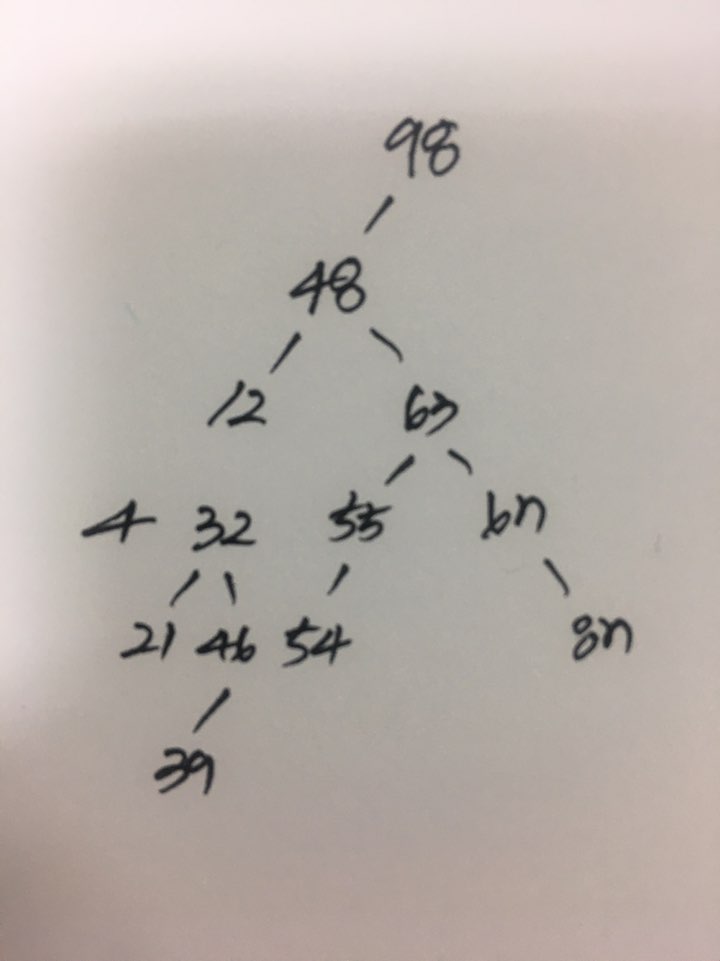 98
48
12 63
4 32 55 67
21 46 54 87
39